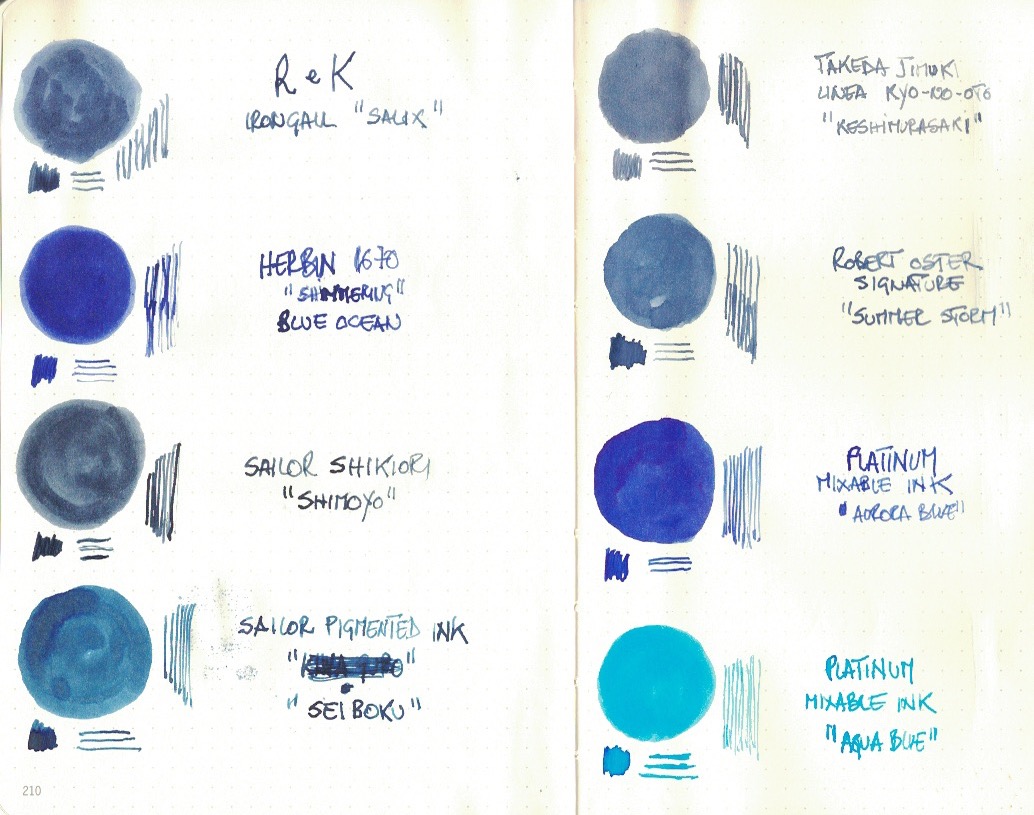 R e K
IRONGALL "SALIX"
HERBIN 1670
"SHIMMERING"
BLUE OCEAN
SAILOR SHIKIORI
"SHIMOYO"
SAILOR PIGMENTED INK
"SEIBOKU"
210
TAKEDA JIMUKI
LINEA KYO-NO-OTO
"KESHIMURASAKI"
ROBERT OSTER
SIGNATURE
"SUMMER STORM"
PLATINUM
MIXABLE INK
"AURORA BLUE"
PLATINUM
MIXABLE INK
"AQUA BLUE"